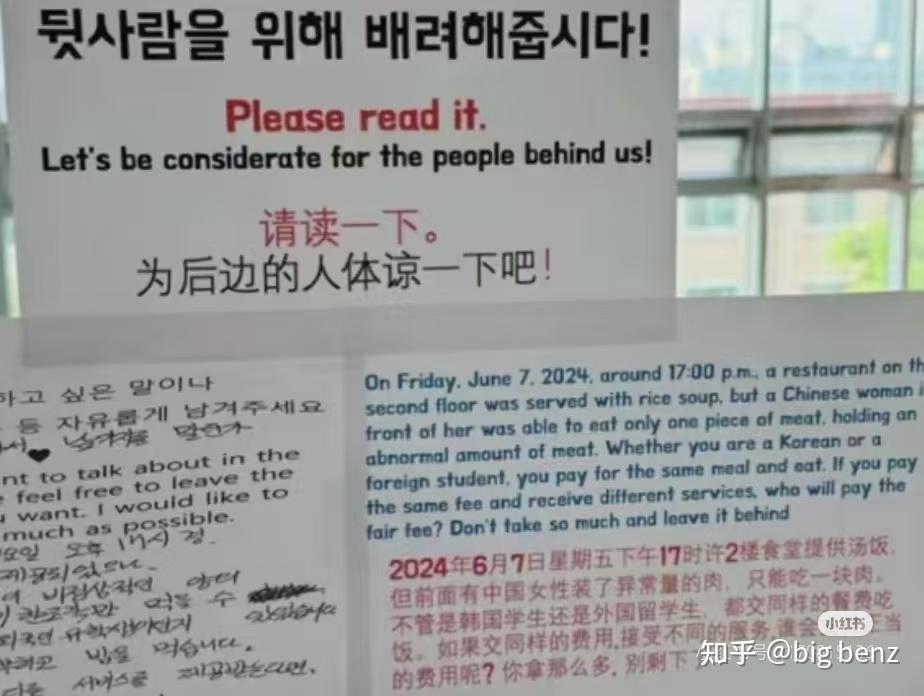 뒷사람을 위해 배려해줍시다!
Please read it.
Let's be considerate for the people behind us!
请读一下。
为后边的人体谅一下吧!
하고 싶은 말이나
등 자유롭게 남겨주세요
nt to talk about in the
feel free to leave the
want. I would like to
much as possible.
요일 오후 17시 경.
비정상적인
먹을 수
외국인 유학생이던지
밥을 먹습니다.
다른 서비스를
On Friday, June 7, 2024, around 17:00 p.m., a restaurant on th
second floor was served with rice soup, but a Chinese woman i
front of her was able to eat only one piece of meat, holding an
abnormal amount of meat. Whether you are a Korean or a
foreign student, you pay for the same meal and eat. If you pay
the same fee and receive different services, who will pay the
fair fee? Don't take so much and leave it behind
2024年6月7日星期五下午17时许2楼食堂提供汤饭,
但前面有中国女性装了异常量的肉, 只能吃一块肉。
不管是韩国学生还是外国留学生, 都交同样的餐费吃
饭。如果交同样的费用,接受不同的服务,谁会
当
的费用呢? 你拿那么多, 别剩下
小红书
知乎 @big benz